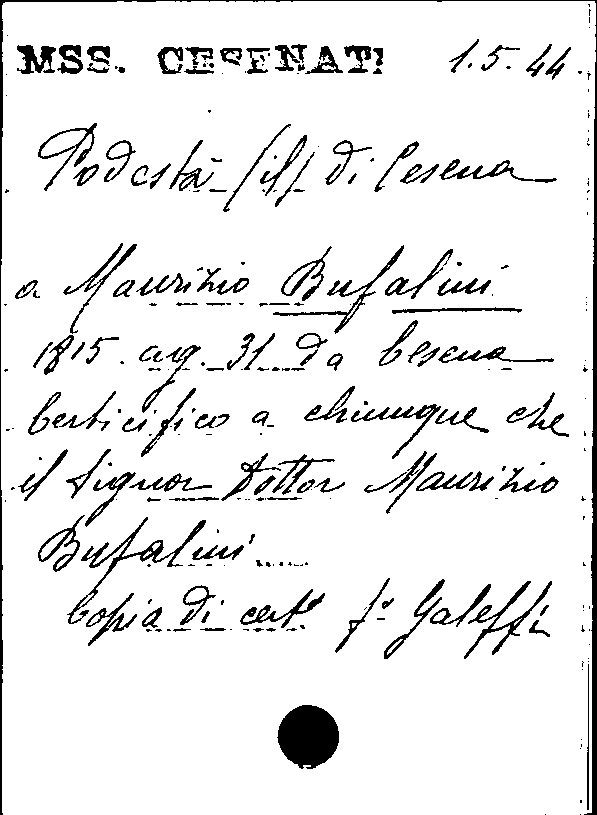 MSS. CESENATI 1.5.44.
Podestà (il) di Cesena
a Maurizio Bufalini
1815. aug. 31 da Cesena
Certicifico a chiunque che
il Signor Dottor Maurizio
Bufalini.....
Copia di certº fº Galeffi